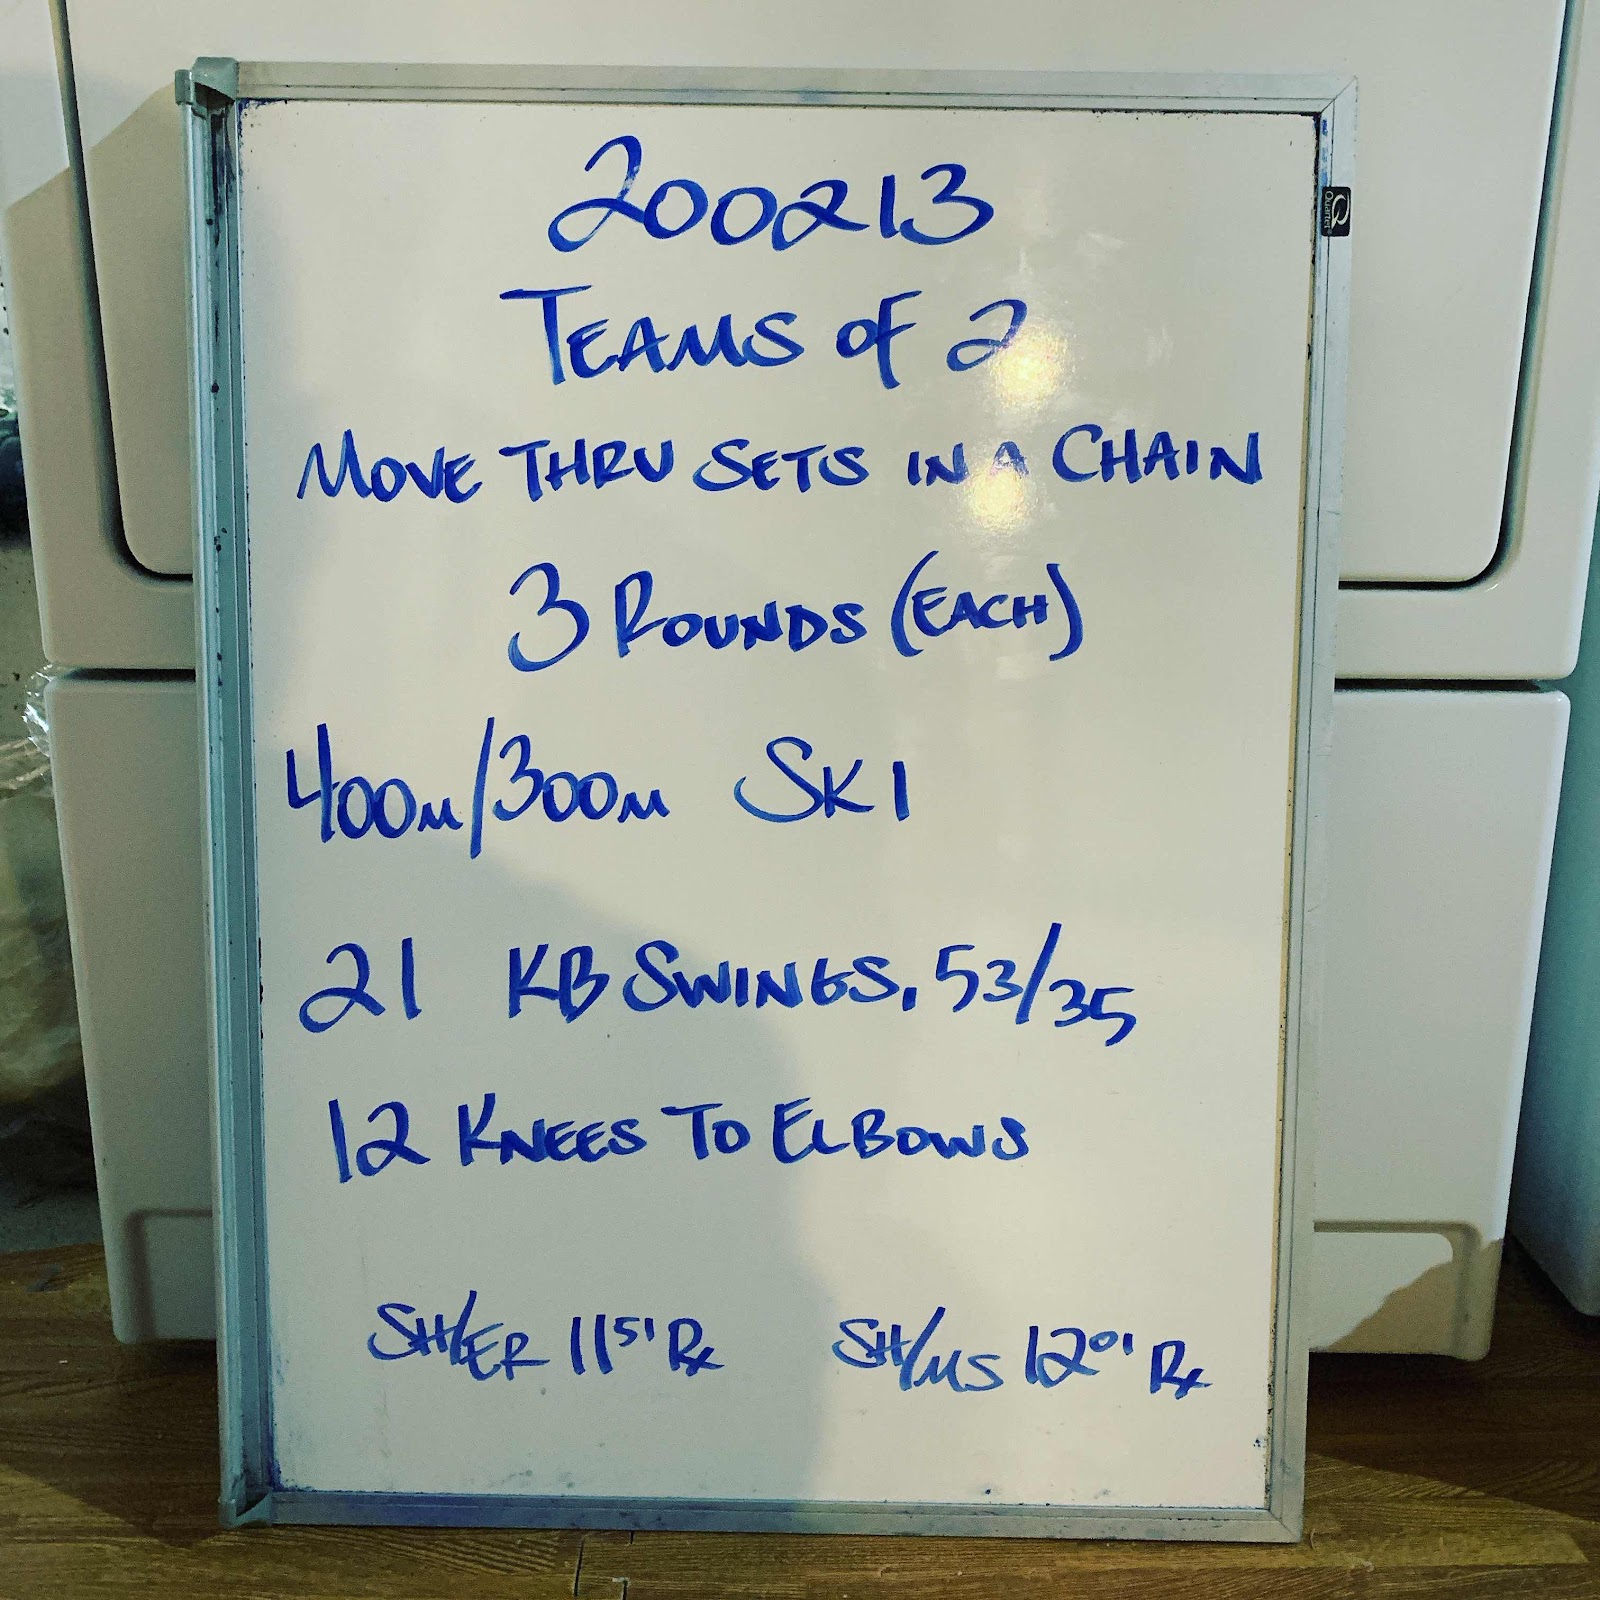 200213
TEAMS OF 2
MOVE THRU SETS IN A CHAIN
3 ROUNDS (EACH)
400M/300M SKI
21 KB SWINGS, 53/35
12 KNEES TO ELBOWS
SH/ER 11 51' Rx SH/MS 12 01' Rx
Quartet